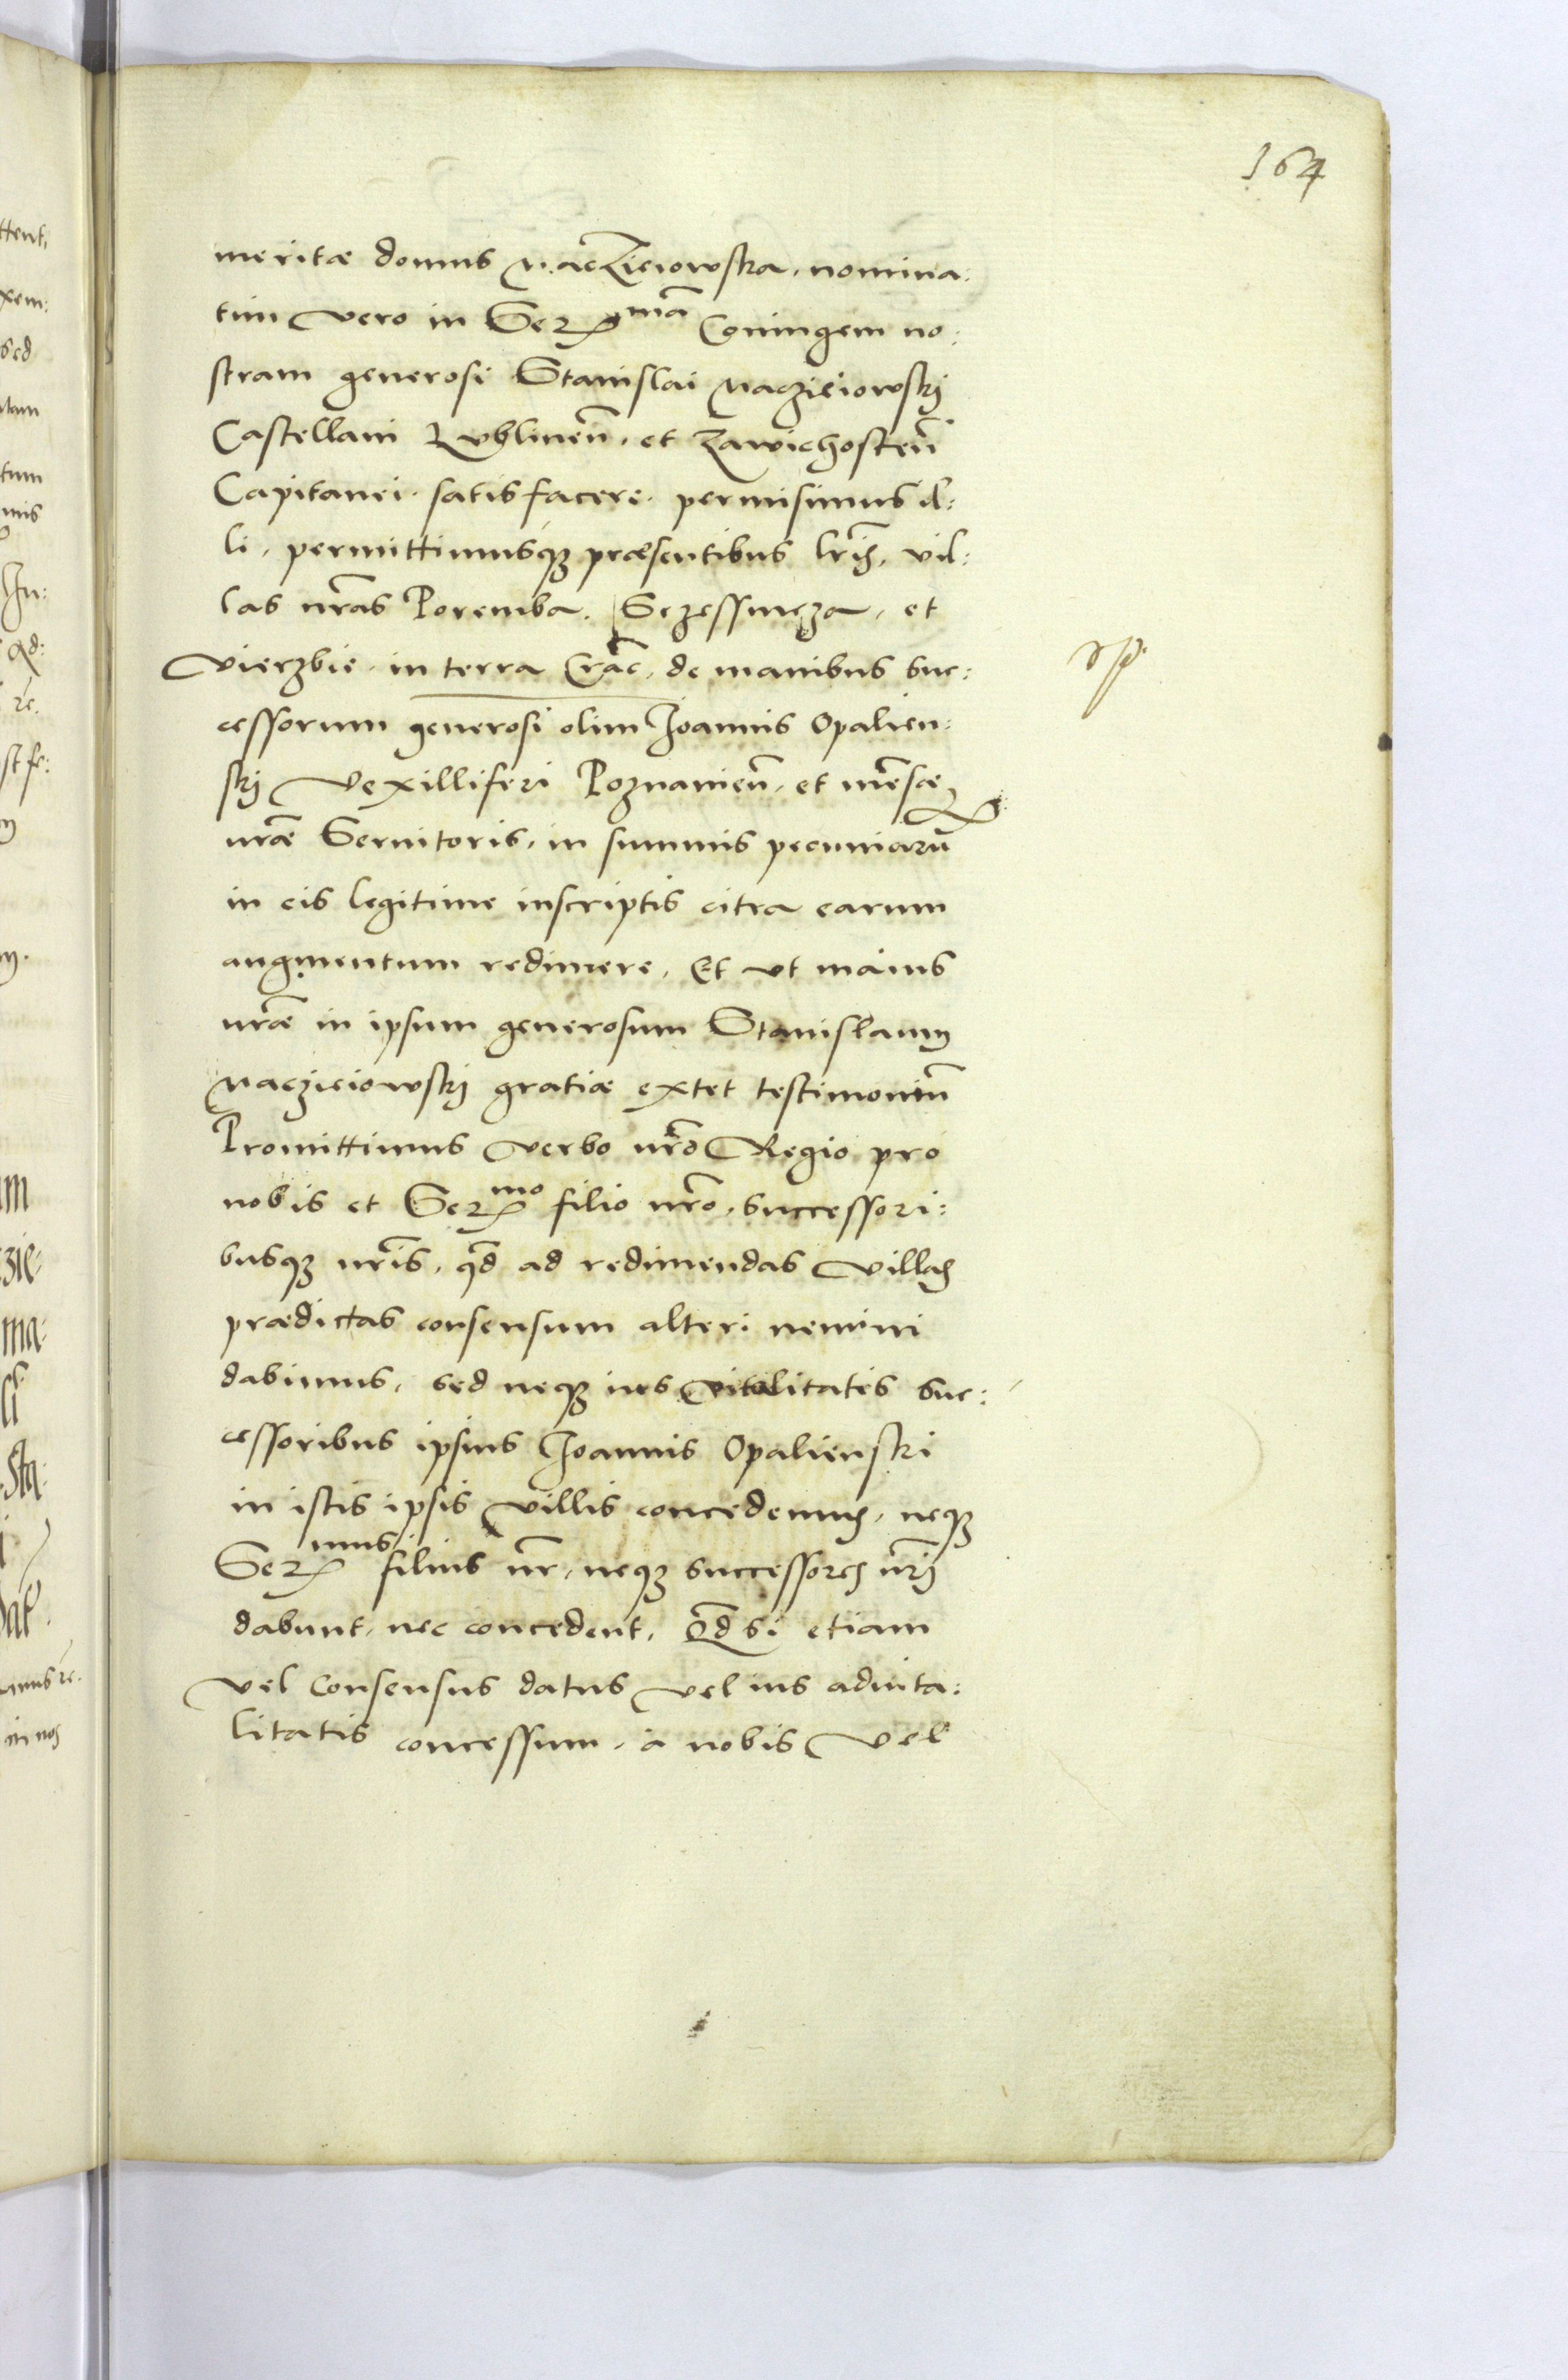 164
meritæ domus Maczieiowska, nomina:
tim vero in Ser^mã Coniugem no:
stram generosi Stanislai Maczieiowskj
Castellani Lublineñ. et Zawichosteñ
Capitanei. satisfacere. permisimus il:
li, permittimusqȝ præsentibus lr̃is, vil:
las nr̃as Poremba. et
Vierzbie. in terra Crac̃. de manibus suc:
cessorum generosi olim Joannis Opalien:
skj Vexilliferi Poznanieñ. et mẽsæ
nr̃æ Seruitoris, in summis pecuniarũ
in eis legitime inscriptis citra earum
augmentum redimere. Et vt maius
nr̃æ in ipsum generosum Stanislaum
Maczieiowskj gratiæ extet testimoniũ
Promittimus verbo nr̃o Regio pro
nobis et Ser^mo filio nr̃o, successori:
busqȝ nr̃is, qd̃ ad redimendas villas
prædictas consensum alteri nemini
dabimus, sed neqȝ ius vitalitatis suc:
cessoribus ipsius Joannis Opalienski
in istis ipsis villis concedemus, neqȝ
Ser^mus filius nr̃, neqȝ successores nr̃j
dabunt, nec concedent. Qd̃ si etiam
vel consensus datus vel ius aduita:
litatis concessum, à nobis vel